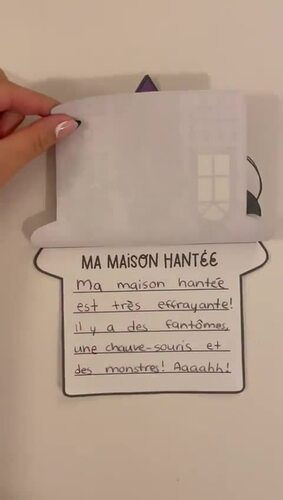 MA MAISON HANTÉE
Ma maison hantée
est très effrayante!
il y a des fantômes,
une chauve-souris et
des monstres! Aaaahh!